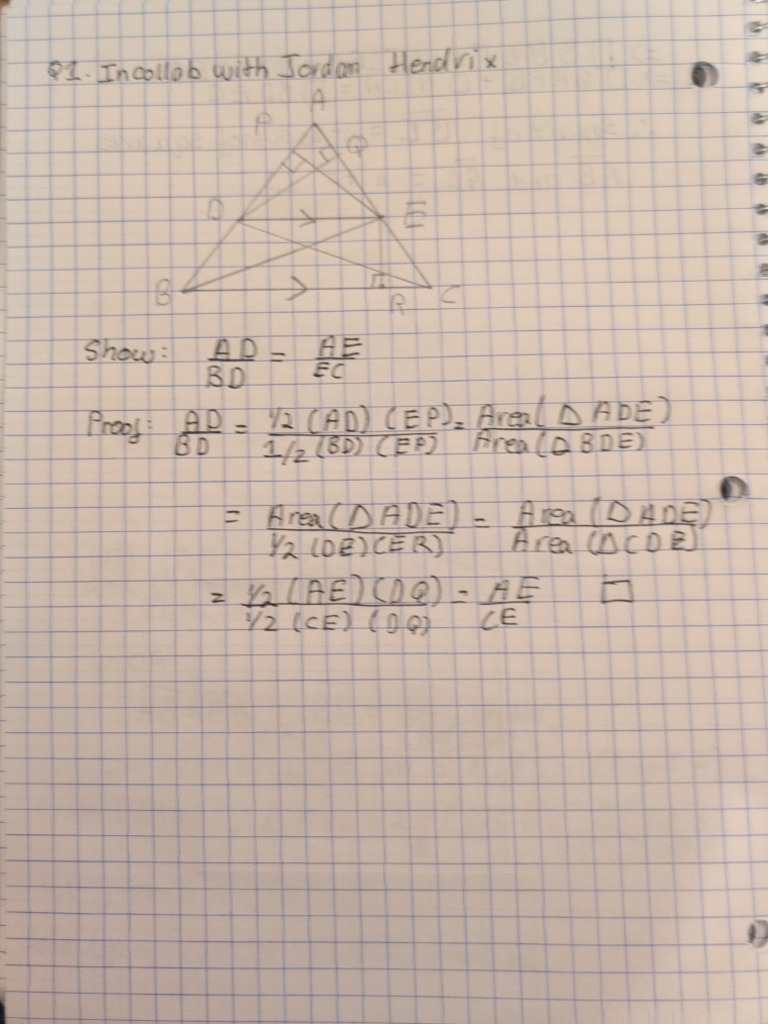 Q1. In collab with Jordan Hendrix
A
P
Q
D
E
B
R
C
Show: AD/BD = AE/EC
Proof: AD/BD = 1/2 (AD) (EP) / 1/2 (BD) (EP) = Area(△ ADE) / Area(△ BDE)
= Area(△ ADE) / 1/2 (DE)(ER) = Area (△ ADE) / Area (△CDE)
= 1/2 (AE)(DQ) / 1/2 (CE) (DQ) = AE/CE □